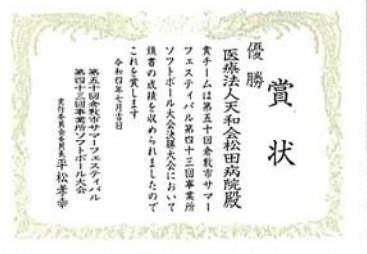 賞状
優勝
医療法人天和会松田病院殿
貴チームは第五十回倉敷市サマー
フェスティバル第四十三回事業所
ソフトボール大会決勝大会において
頭書の成績を収められましたので
これを賞します
令和四年七月吉日
第五十回倉敷市サマーフェスティバル
第四十三回事業所ソフトボール大会
実行委員会委員長 平松孝幸